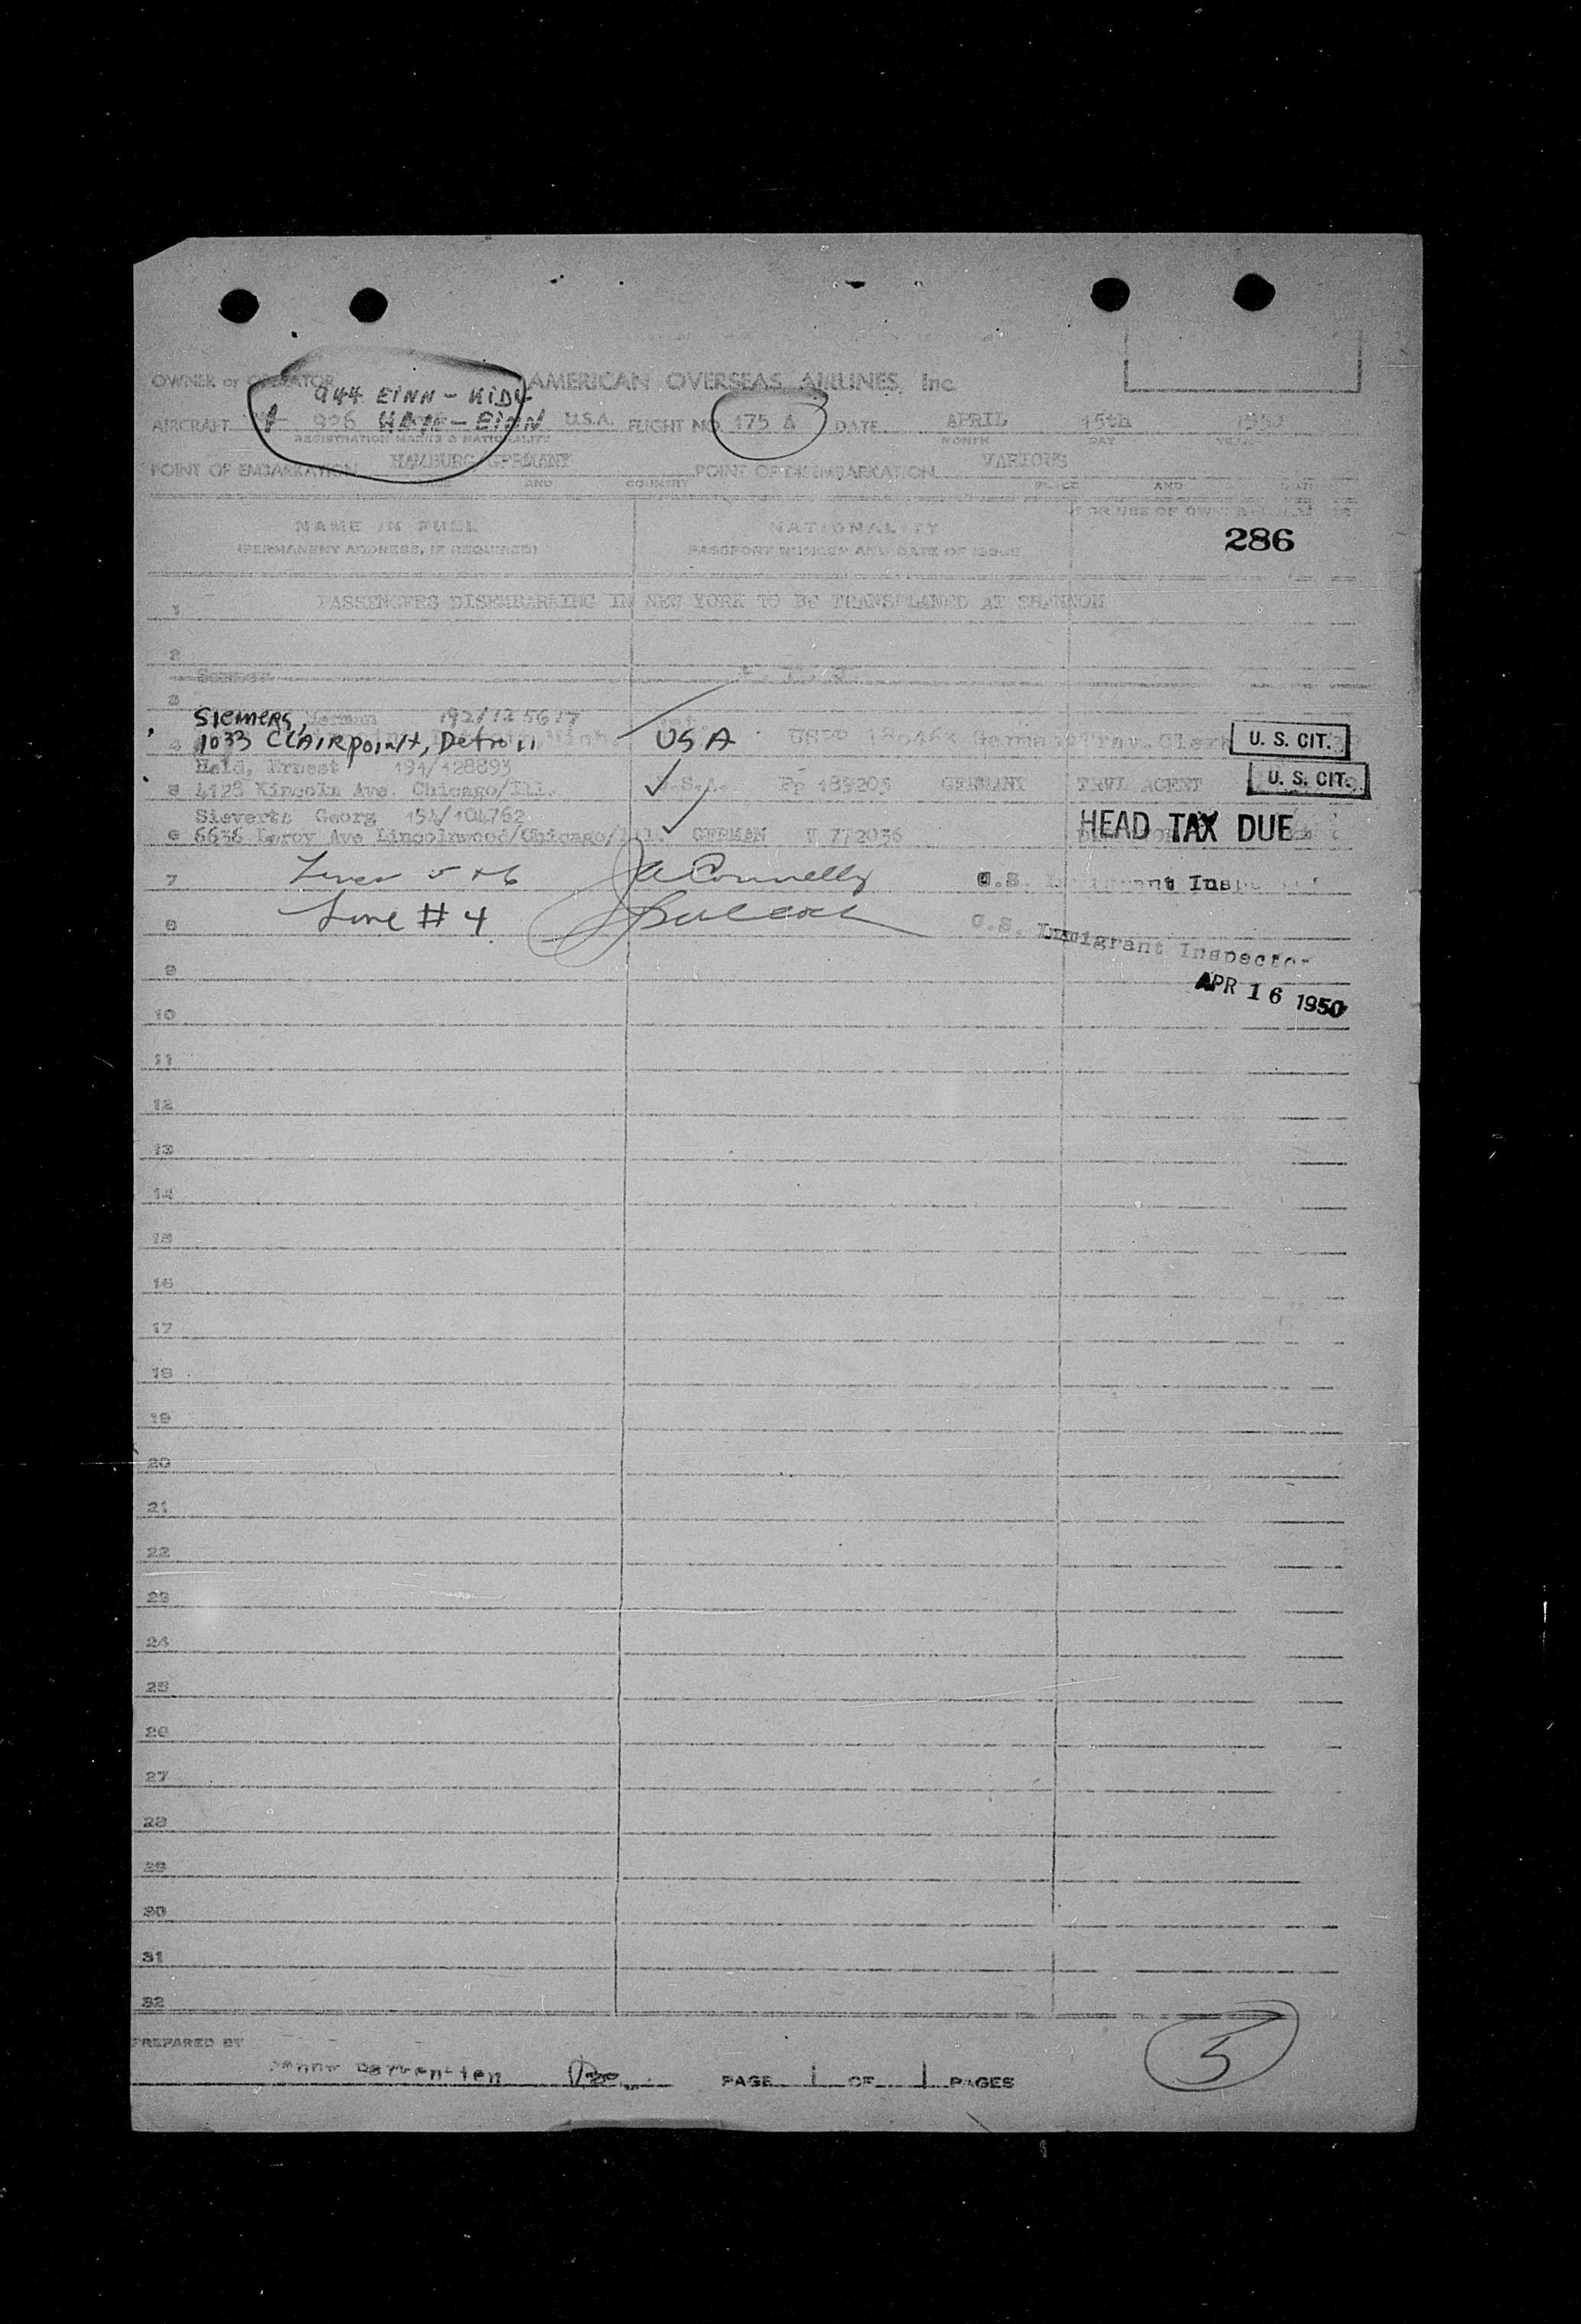 OWNER or OPERATOR AMERICAN OVERSEAS AIRLINES, Inc
944 EINN - KIDL
AIRCRAFT N- 906 HAM - EINN U.S.A. FLIGHT NO. 175 A DATE APRIL 15th 1950
REGISTRATION MARKS & NATIONALITY MONTH DAY YEAR
POINT OF EMBARKATION HAMBURG/GERMANY POINT OF DISEMBARKATION VARIOUS
PLACE AND COUNTRY PLACE AND
NAME IN FULL NATIONALITY FOR USE OF OWNER
(PERMANENT ADDRESS, IF REQUIRED) PASSPORT NUMBER AND DATE OF ISSUE 286
1 PASSENGERS DISEMBARKING IN NEW YORK TO BE TRANSPLANED AT SHANNON
2
3
Siemers, Herman 192/125617
4 1033 CLAIRpoint, Detroit USA German Trav. Clerk U. S. CIT.
Held, Ernest 191/128893
5 4128 Kincoln Ave. Chicago/Ill. U.S.A. Pp 189205 GERMANY TRVL AGENT U. S. CIT.
Sieverts Georg 154/104762
6 6636 Leroy Ave Lincolnwood/Chicago/Ill. GERMAN V 772036 HEAD TAX DUE
7 Lines 5 + 6 JA Connelly U.S. Immigrant Inspector
8 Line # 4 U.S. Immigrant Inspector
9
APR 16 1950
10
11
12
13
14
15
16
17
18
19
20
21
22
23
24
25
26
27
28
29
30
31
32
PREPARED BY
PAGE 1 OF 1 PAGES
5